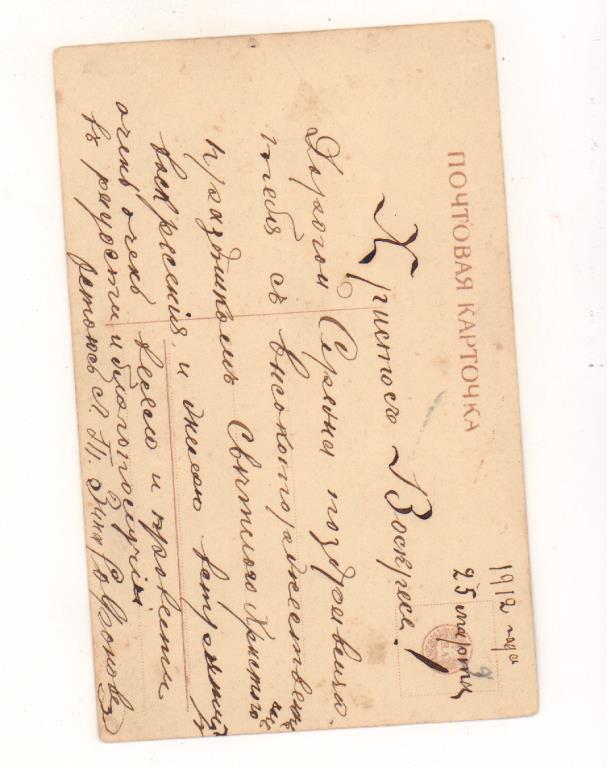 ПОЧТОВАЯ КАРТОЧКА
1912 года
25 марта
Христосъ Воскресе!
Дорогой Сережа поздравляю
тебя съ высокоторжествен
нымъ
праздникомъ Святлого Христова
воскресения и желаю встретить
очень очень весело и провести
въ радости и благополучии
Зина Сафронова